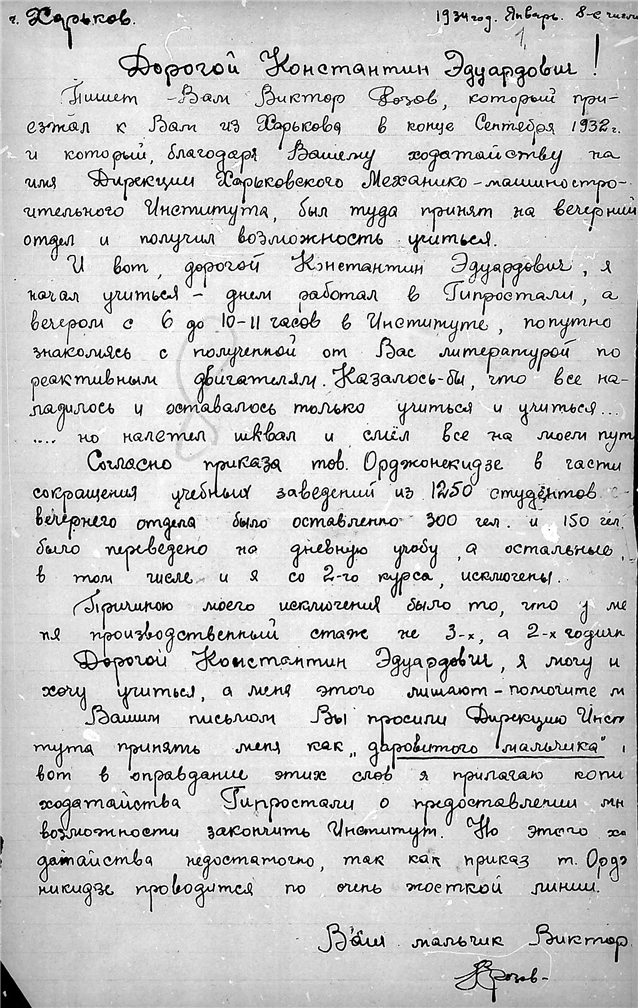 г. Харьков. 1934 год. Январь. 8-е число
1
Дорогой Константин Эдуардович!
Пишет Вам Виктор Розов, который при-
езжал к Вам из Харькова в конце Сентября 1932 г.
и который, благодаря Вашему ходатайству на
имя Дирекции Харьковского Механико-машиностро-
ительного Института, был туда принят на вечерний
отдел и получил возможность учиться.
И вот, дорогой Константин Эдуардович, я
начал учиться – днем работал в Гипростали, а
вечером с 6 до 10-11 часов в Институте, попутно
знакомясь с полученной от Вас литературой по
реактивным двигателям. Казалось-бы, что все на-
ладилось и оставалось только учиться и учиться...
.... но налетел шквал и смёл все на моем пут
Согласно приказа тов. Орджонекидзе в части
сокращения учебных заведений из 1250 студентов
вечернего отдела было оставленно 300 чел. и 150 чел.
было переведено на дневную учобу, а остальные,
в том числе и я со 2-го курса, исключены.
Причиною моего исключения было то, что у ме
ня производственный стаж не 3-х, а 2-х годичн
Дорогой Константин Эдуардович, я могу и
хочу учиться, а меня этого лишают – помогите м
Вашим письмом Вы просили Дирекцию Инст
тута принять меня как „даровитого мальчика"
вот в оправдание этих слов я прилагаю копи
ходатайства Гипростали о предоставлении мн
возможности закончить Институт. Но этого хо
датайства недостаточно, так как приказ т. Ордж
никидзе проводится по очень жосткой линии.
Ваш мальчик Виктор.
Розов